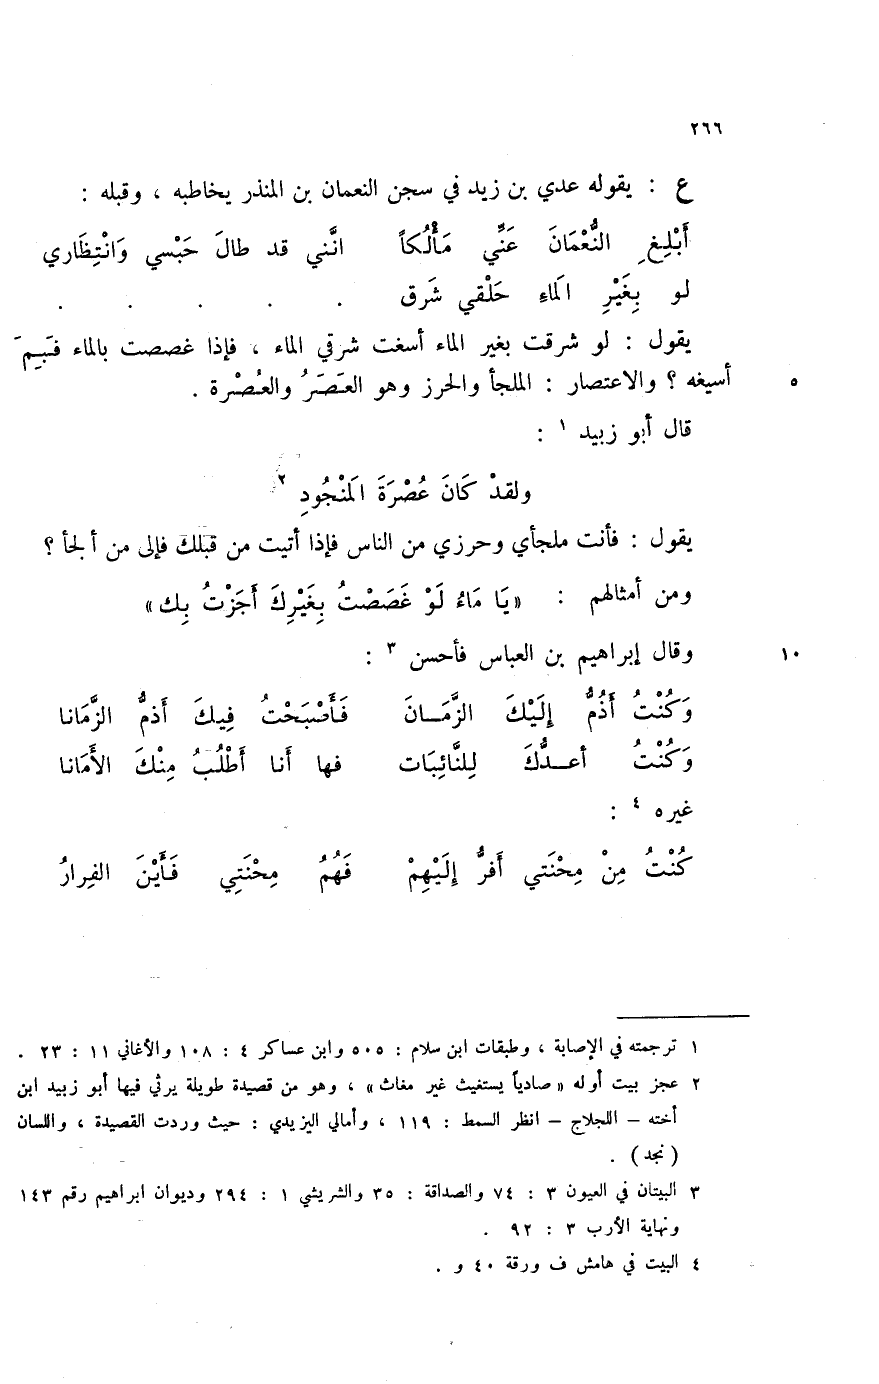 ٢٦٦
ع : يقوله عدي بن زيد في سجن النعمان بن المنذر يخاطبه ، وقبله :
أَبْلِغِ النُّعْمَانَ عَنِّي مَأْلُكاً انَّني قد طالَ حَبْسي وَانْتِظَاري
لو بِغَيْرِ الَماءِ حَلْقي شَرق . . . . .
يقول : لو شرقت بغير الماء أسغت شرقي الماء ، فإذا غصصت بالماء فَبِمَ
٥ أسيغه ؟ والاعتصار : الملجأ والحرز وهو العَصَرُ والعُصْرة .
قال أبو زبيد ١ :
ولقدْ كَانَ عُصْرَةَ الَمنْجُودِ ٢
يقول : فأنت ملجأي وحرزي من الناس فإذا أتيت من قبلك فإلى من ألجأ ؟
ومن أمثالهم : « يَا مَاءُ لَوْ غَصَصْتُ بِغَيْرِكَ أَجَزْتُ بِك »
١٠ وقال إبراهيم بن العباس فأحسن ٣ :
وَكُنْتُ أَذُمُّ إِلَيْكَ الزَّمَــانَ فَأَصْبَحْتُ فِيكَ أَذمُّ الزَّمَانا
وَكُنْتُ أعــدُّكَ لِلنَّائِبَات فها أَنا أَطْلُبُ مِنْكَ الأَمَانا
غيره ٤ :
كُنْتُ مِنْ مِحْنَتي أَفرُّ إِلَيْهِمْ فَهُمُ مِحْنَتِي فَأَيْنَ الفِرارُ
١ ترجمته في الإصابة ، وطبقات ابن سلام : ٥٠٥ وابن عساكر ٤ : ١٠٨ والأغاني ١١ : ٢٣ .
٢ عجز بيت أوله « صادياً يستغيث غير مغاث » ، وهو من قصيدة طويلة يرثي فيها أبو زبيد ابن
أخته – اللجلاج – انظر السمط : ١١٩ ، وأمالي اليزيدي : حيث وردت القصيدة ، واللسان
( نجد ) .
٣ البيتان في العيون ٣ : ٧٤ والصداقة : ٣٥ والشريشي ١ : ٢٩٤ وديوان ابراهيم رقم ١٤٣
ونهاية الأرب ٣ : ٩٢ .
٤ البيت في هامش ف ورقة ٤٠ و .